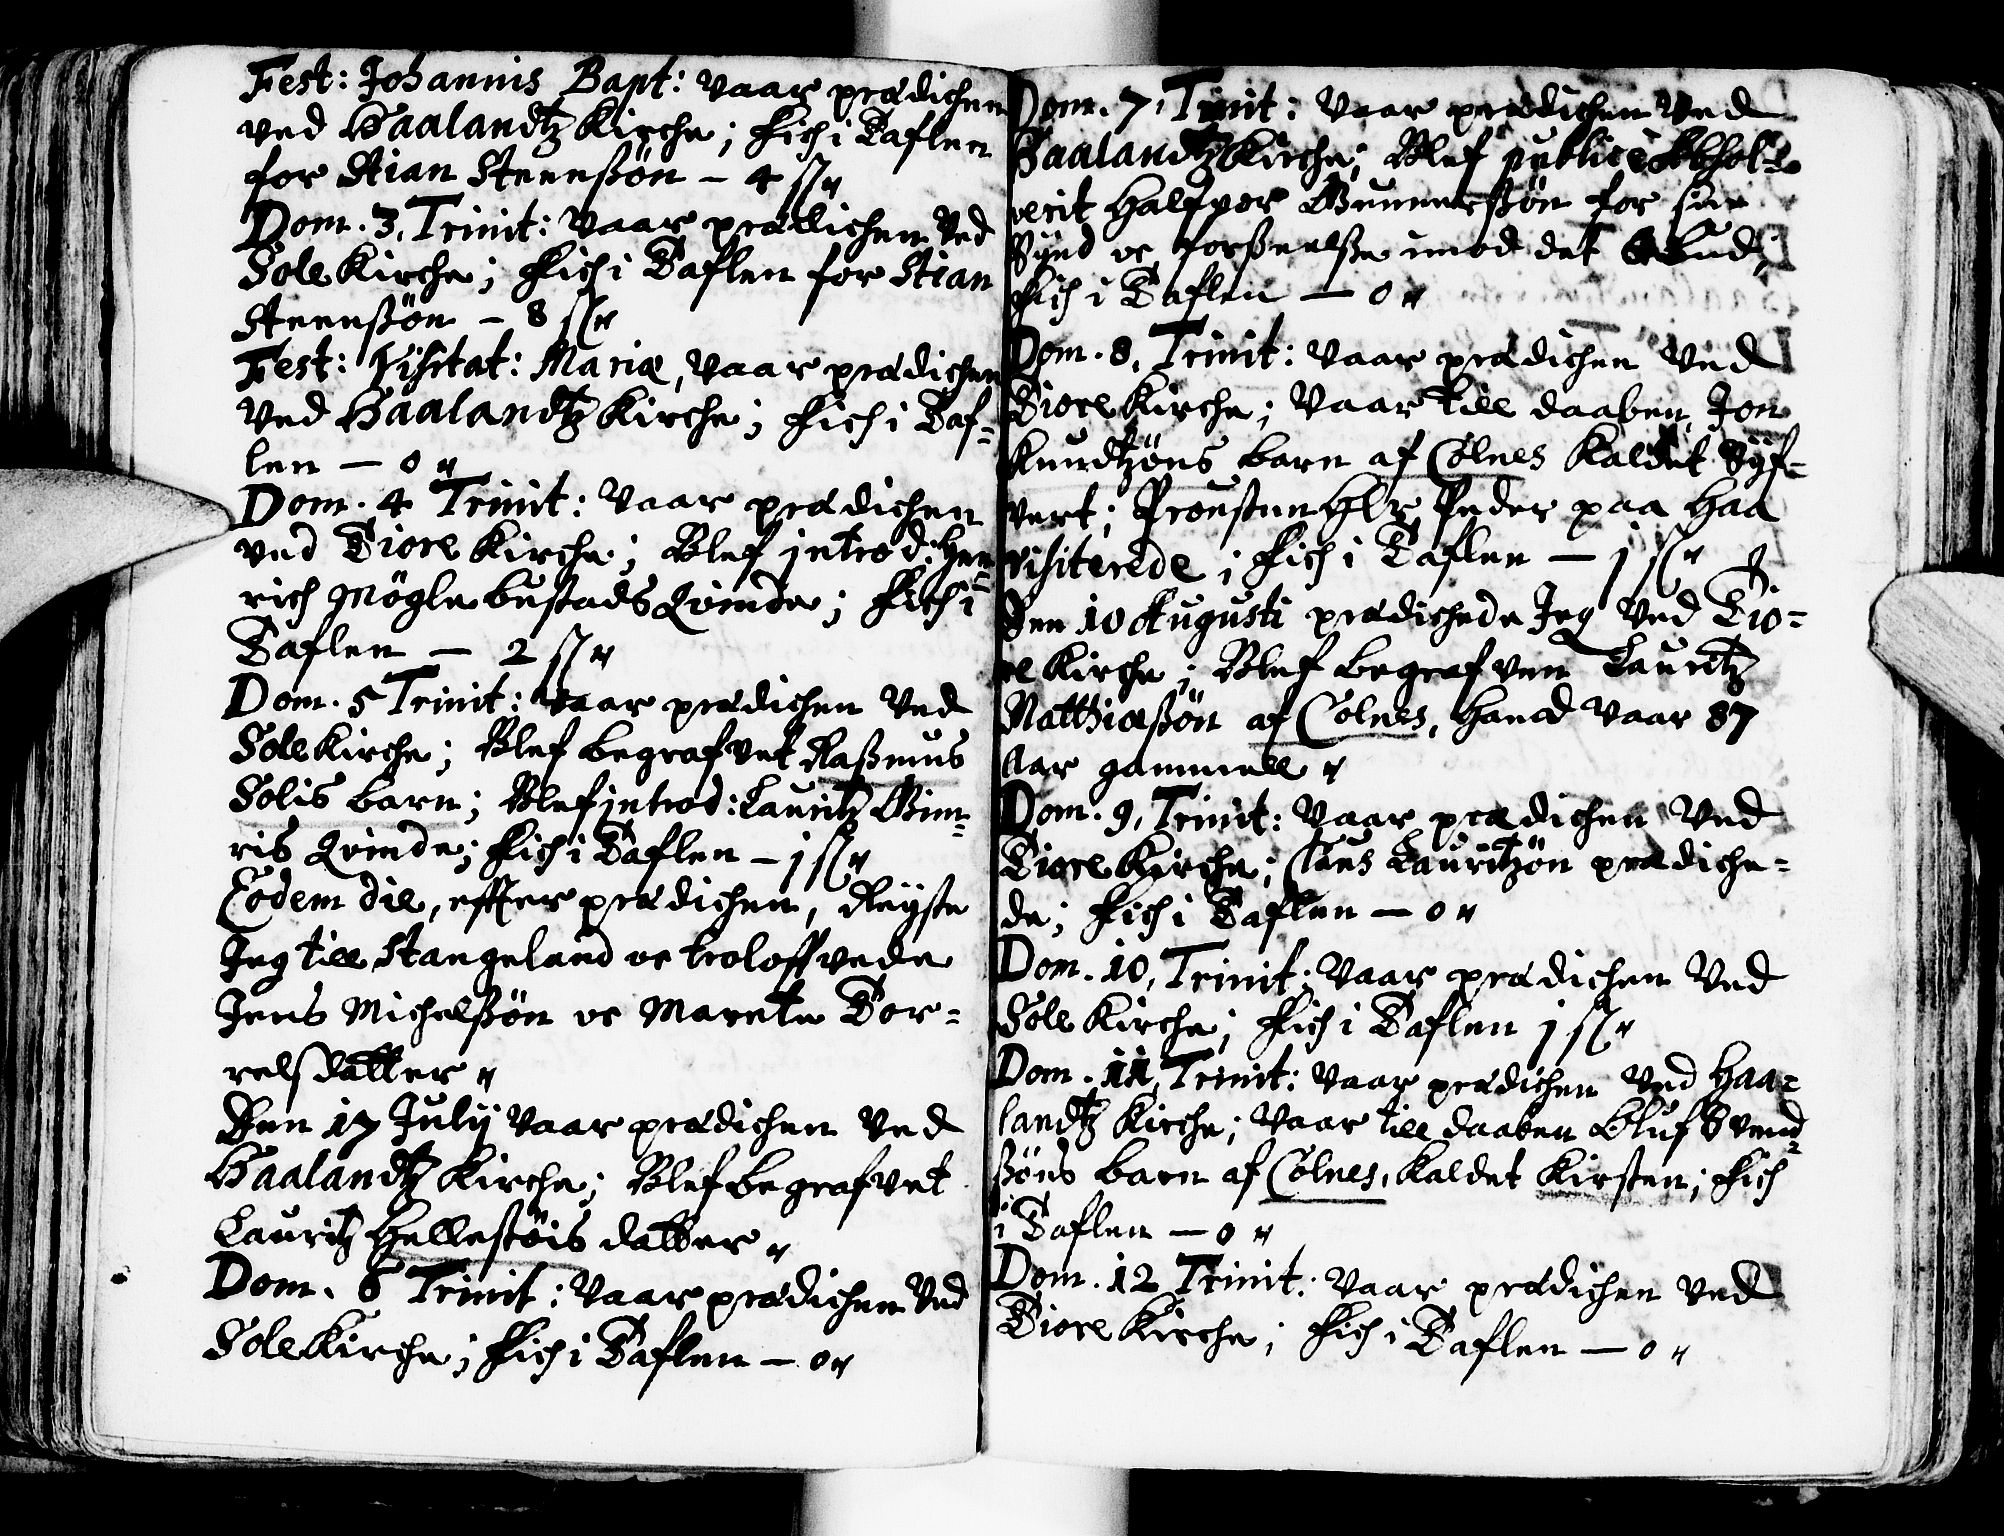 Fest: Johannis Bapt: vaar prædichen
ved Haalandtz Kirche; Fich i Taflen
for Stian Steenßøn – 4 ß
Dom. 3, Trinit: vaar prædichen ved
Sole Kirche; Fich i Taflen for Stian
Steenßøn – 8 ß
Fest: Visitat: Mariæ, vaar prædichen
ved Haalandtz Kirche; Fich i Taf-
len – 0
Dom. 4 Trinit: vaar prædichen
ved Tiore Kirche; Blef introd: Hen-
rich Møglebustads Qvinde; Fich i
Taflen – 2 ß
Dom. 5 Trinit: vaar prædichen ved
Sole Kirche; Blef begrafvet Raßmus
Solis barn; Blef introd: Lauritz Gim-
ris Qvinde; Fich i Taflen – j ß
Eodem die, effter prædichen, Reyste
Jeg till Stangeland oc troloffvede
Jens Michelßøn oc Marete Tor-
relsdatter
Den 17 July vaar prædichen ved
Haalandtz Kirche; Blef begrafvet
Lauritz Hellestøis datter
Dom. 6 Trinit: vaar prædichen ved
Sole Kirche; Fich i Taflen – 0
Dom. 7, Trinit: vaar prædichen ved
Haalandtz Kirche; Blef publice Abſol-
verit Halfvor Gunnerßøn for sin
Synd oc forßeelße imod det 6 bud;
Fich i Taflen – 0
Dom. 8, Trinit: vaar prædichen ved
Tiore Kirche; vaar till daaben, Jon
Knudtzøns barn af Colnes Kaldet Syf-
vert; Prousten Hlr Peder paa Haa
visiterede; Fich i Taflen – j ß
Den 10 Augusti prædichede Jeg ved Tio-
re Kirche; Blef begrafven Lauritz
Matthiæßøn af Colnes, hand vaar 87
Aar gammell
Dom. 9, Trinit: vaar prædichen ved
Tiore Kirche; Claus Lauritzøn prædiche-
de; Fich i Taflen – 0
Dom. 10, Trinit: vaar prædichen ved
Sole Kirche; Fich i Taflen j ß
Dom. 11, Trinit: vaar prædichen ved Haa-
landtz Kirche; vaar till daaben Oluf Svend-
ßøns barn af Colnes, Kaldet Kirsten; Fich
i Taflen – 0
Dom. 12 Trinit: vaar prædichen ved
Tiore Kirche; Fich i Taflen – 0